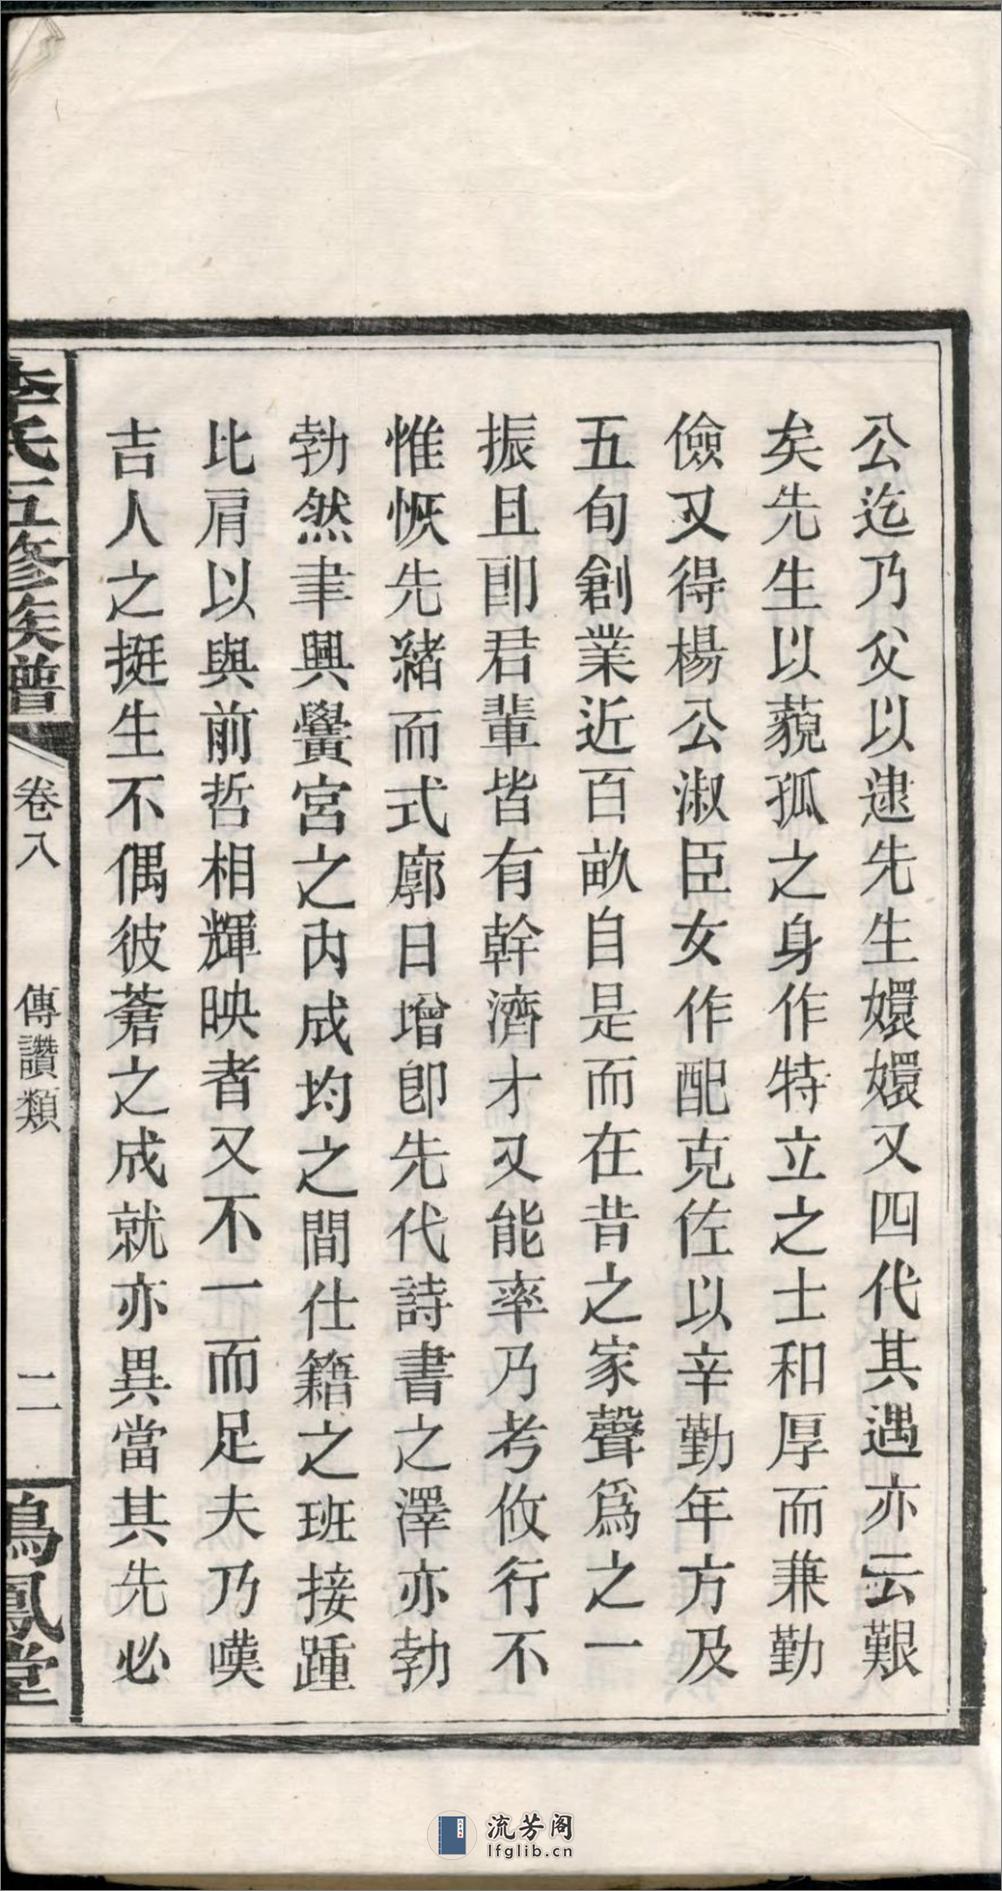 公迄乃父以逮先生嬛嬛又四代其遇亦云艱
矣先生以藐孤之身作特立之士和厚而兼勤
儉又得楊公淑臣女作配克佐以辛勤年方及
五旬創業近百畝自是而在昔之家聲爲之一
振且即君輩皆有幹濟才又能率乃考攸行不
惟恢先緒而式廓日增卽先代詩書之澤亦勃
勃然聿興黌宮之內成均之間仕籍之班接踵
比肩以與前哲相輝映者又不一而足夫乃嘆
吉人之挺生不偶彼蒼之成就亦異當其先必
李氏五修族譜
卷八
傳讚類
二
鳴鳳堂
流芳阁
lfglib.cn